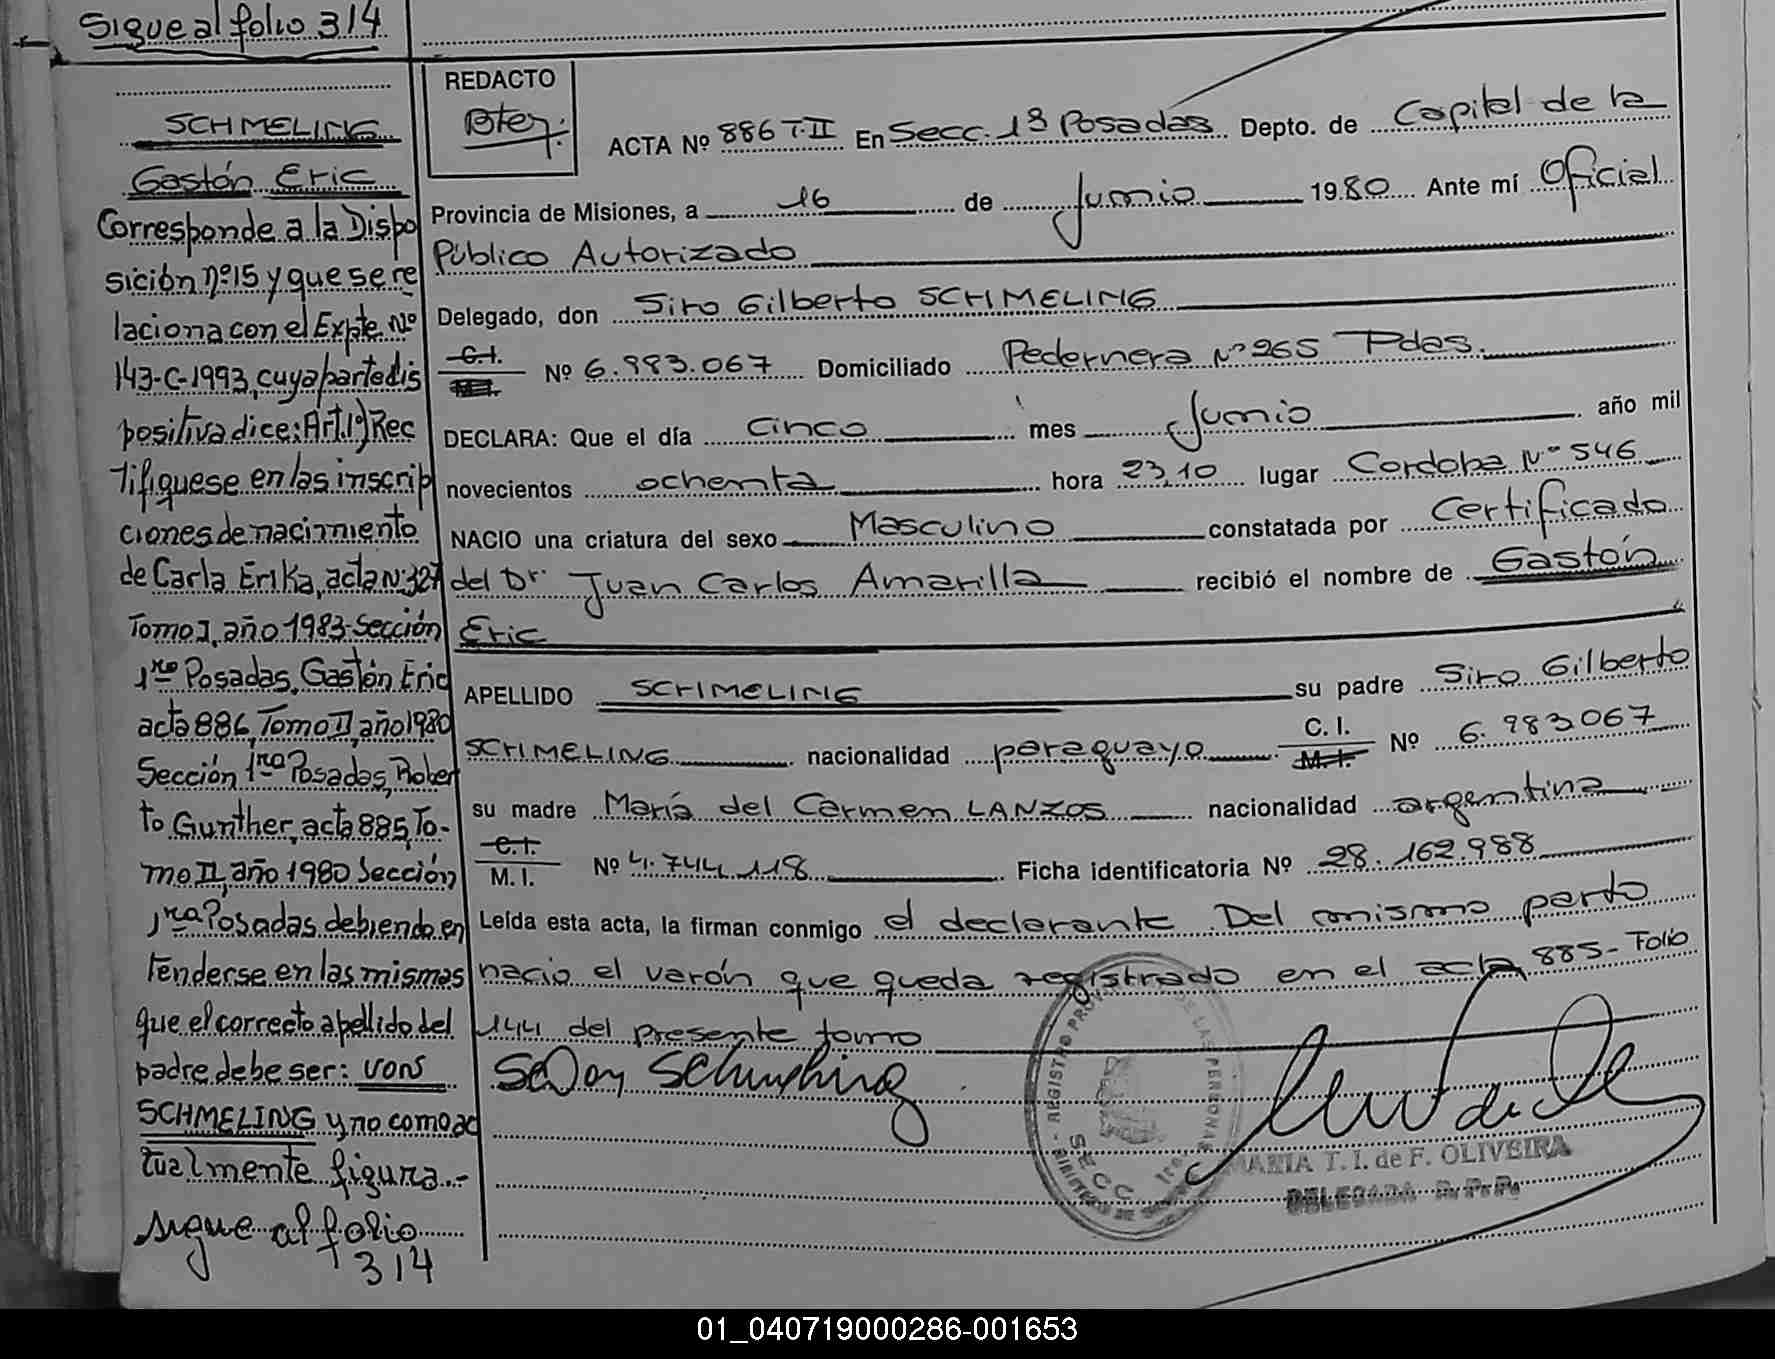 Sigue al folio 314
SCHMELING
Gastón Eric
Corresponde a la Dispo
sición nº 15 y que se re
laciona con el Expte. Nº
143-C-1993, cuya parte dis
positiva dice: Art. 1º) Rec
tifíquese en las inscrip
ciones de nacimiento
de Carla Erika, acta Nº 327
Tomo I, año 1983-Sección
1ra Posadas, Gastón Eric
acta 886, Tomo II, año 1980
Sección 1ra Posadas, Rober
to Gunther, acta 885, To-
mo II, año 1980 Sección
1ra Posadas, debiendo en
tenderse en las mismas
que el correcto apellido del
padre debe ser: vons
SCHMELING y no como ac
tualmente figura.-
sigue al folio
314
REDACTO
ACTA Nº 886 T.II En Secc. 1ª Posadas Depto. de Capital de la
Provincia de Misiones, a 16 de Junio 1980 Ante mí Oficial
Público Autorizado
Delegado, don Siro Gilberto SCHMELING
C.I.
M.I. Nº 6.983.067 Domiciliado Pedernera Nº 265 Pdas.
DECLARA: Que el día cinco mes Junio año mil
novecientos ochenta hora 23,10 lugar Cordoba Nº 546
NACIO una criatura del sexo Masculino constatada por Certificado
del Dr. Juan Carlos Amarilla recibió el nombre de Gastón
Eric
APELLIDO SCHMELING su padre Siro Gilberto
SCHMELING nacionalidad paraguayo C. I. M.I. Nº 6.983067
su madre María del Carmen LANZOS nacionalidad argentina
C.I.
M. I. Nº 4.744.118 Ficha identificatoria Nº 28.162.988
Leída esta acta, la firman conmigo el declarante. Del mismo parto
nacio el varón que queda registrado en el acta 885- Folio
144 del presente tomo
REGISTRO PROV. DE LAS PERSONAS
SECC. 1ra.
MARIA T. I. de F. OLIVEIRA
DELEGADA R. P. P.
01_040719000286-001653